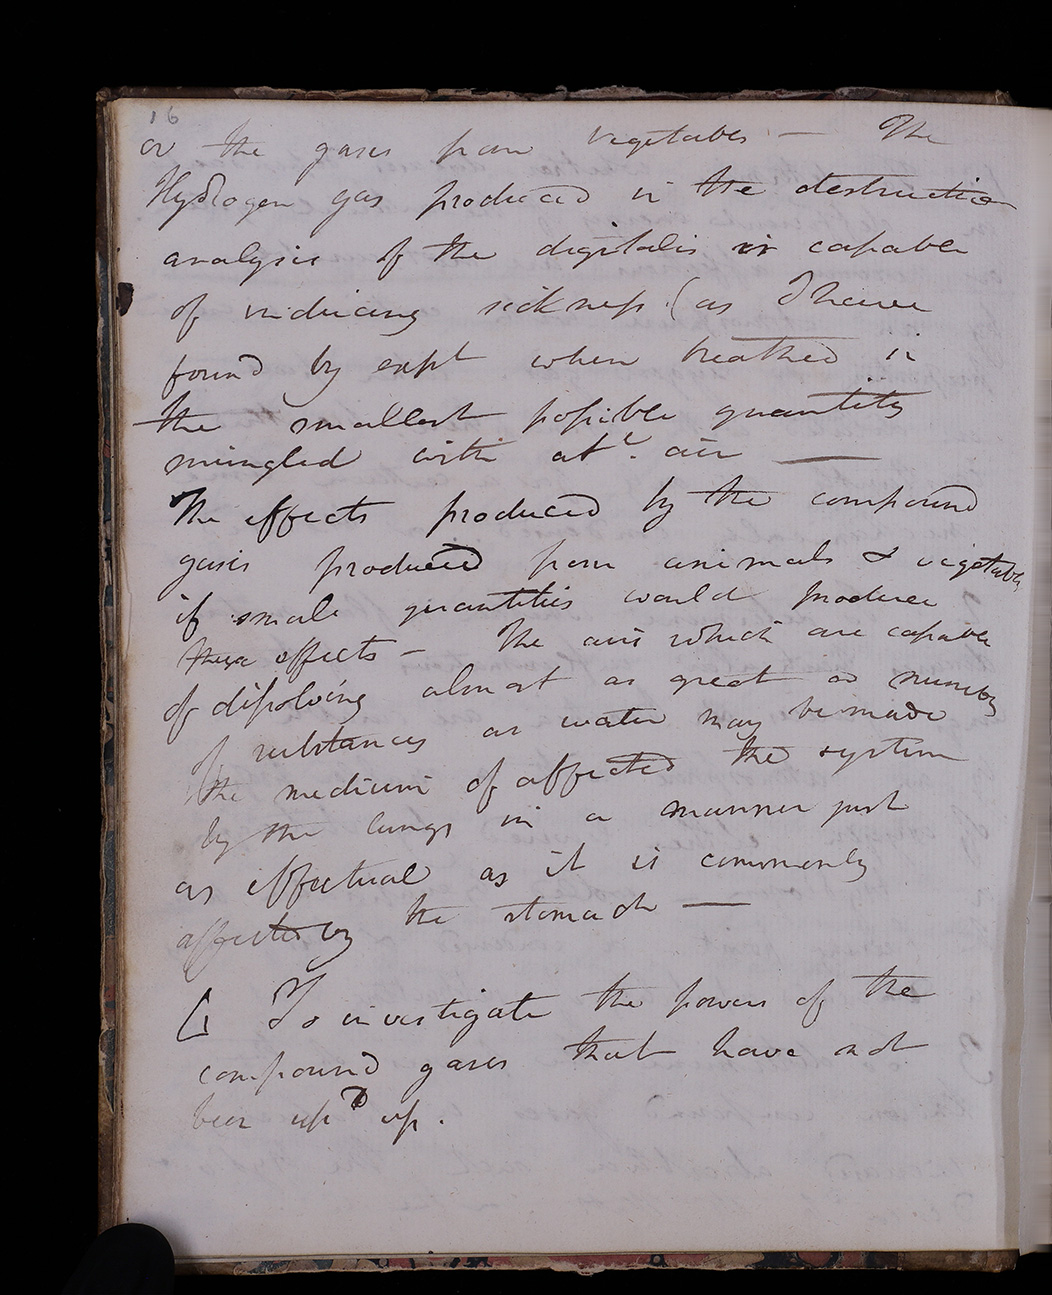 16
or the gases from vegetables — The
Hydrogen gas produced in the destructive
analysis of the digitalis is capable
of inducing sickness (as I have
found by expt when breathed in
the smallest possible quantity
mingled with atl. air —
The effects produced by the compound
gases produced from animals & vegetables
if small quantities would produce
these effects — The airs which are capable
of dissolving almost as great a number
of substances as water may be made
the medium of affected the system
by the lungs in a manner just
as effectual as it is commonly
affected by the stomach —
To investigate the powers of the
compound gases that have not
been up.